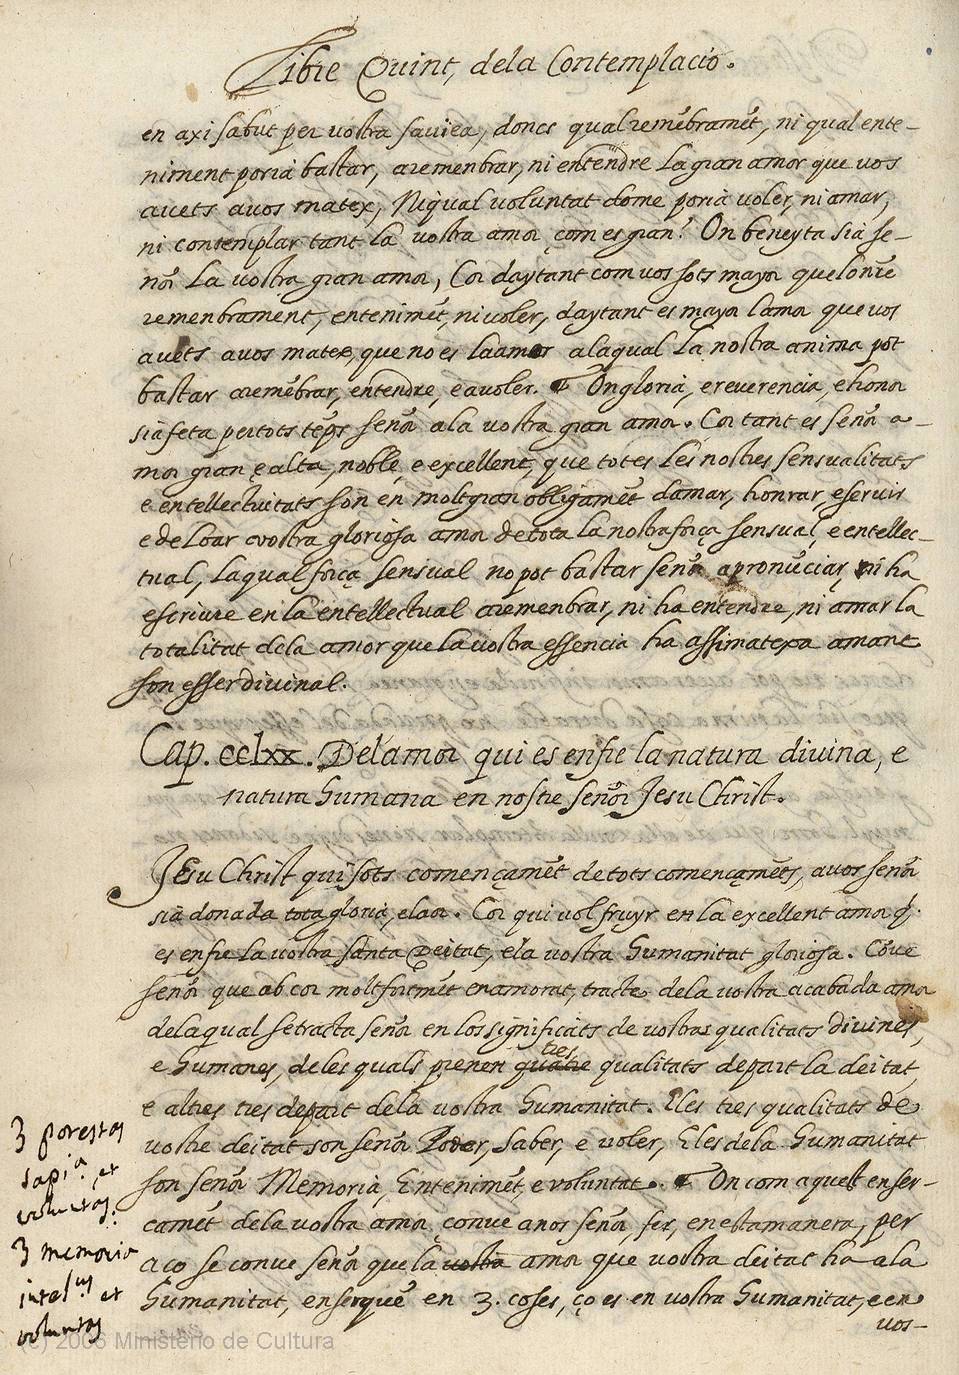 Libre Quint, dela Contemplacio.
en axi sabut per vostra saviea, doncs qual remēbramēt, ni qual ente-
niment poria bastar, aremenbrar, ni entendre la gran amor que vos
avets avos matex, Ni qual voluntat dome poria voler, ni amar,
ni contemplar tant la vostra amor com es gran? On beneyta sia se-
ñor la vostra gran amor, Cor daytant com vos sots mayor que lo nre
remenbrament, entenimēt, ni voler, daytant es mayor lamor que vos
avets avos matex, que no es la amor ala qual la nostra anima pot
bastar aremēbrar, entendre, e avoler. On gloria, e reverencia, e honor
sia feta per tots tēps señor ala vostra gran amor. Cor tant es señor a-
mor gran e alta, noble, e excellent, que totes les nostres sensualitats
e entellectuitats son en molt gran obligamēt damar, honrar, e servir
e de loar vostra gloriosa amor de tota la nostra força sensual, e entellec-
tual, laqual força sensual no pot bastar señor apronūciar, ni ha
escriure en la entellectual aremenbrar, ni ha entendre, ni amar la
totalitat dela amor que la vostra essencia ha assimatexa amant
son esser divinal.
Cap. cclxx. Del amor qui es enfre la natura divina, e
natura humana en nostre señor Jesu Christ.
Jesu Christ qui sots començamēt de tots comencamēts, avos señor
sia donada tota gloria, e laor. Cor qui vol fruyr en la excellent amor q̄
es enfre la vostra santa Deitat, e la vostra humanitat gloriosa. Cove
señor que ab cor molt fortmēt enamorat, tracte dela vostra acabada amor
dela qual se tracta señor en los significats de vostras qualitats divines,
e humanes, deles quals prenen quatre tres qualitats depart la deitat,
e altres tres depart dela vostra humanitat. E les tres qualitats de
vostre deitat son señor Poder, saber, e voler, E les dela humanitat
son señor Memoria, Entenimēt, e voluntat. On com aquest enser-
camēt dela vostra amor, conve anos señor, fer, en esta manera, per
aco se conve señor que la vostra amor que vostra deitat ha ala
humanitat, enserquē en 3. coses, ço es en vostra humanitat, e en
vos-
3 potestas
sapiª. et
voluntas.
3 memoria
intelus et
voluntas
(c) 2006 Ministerio de Cultura